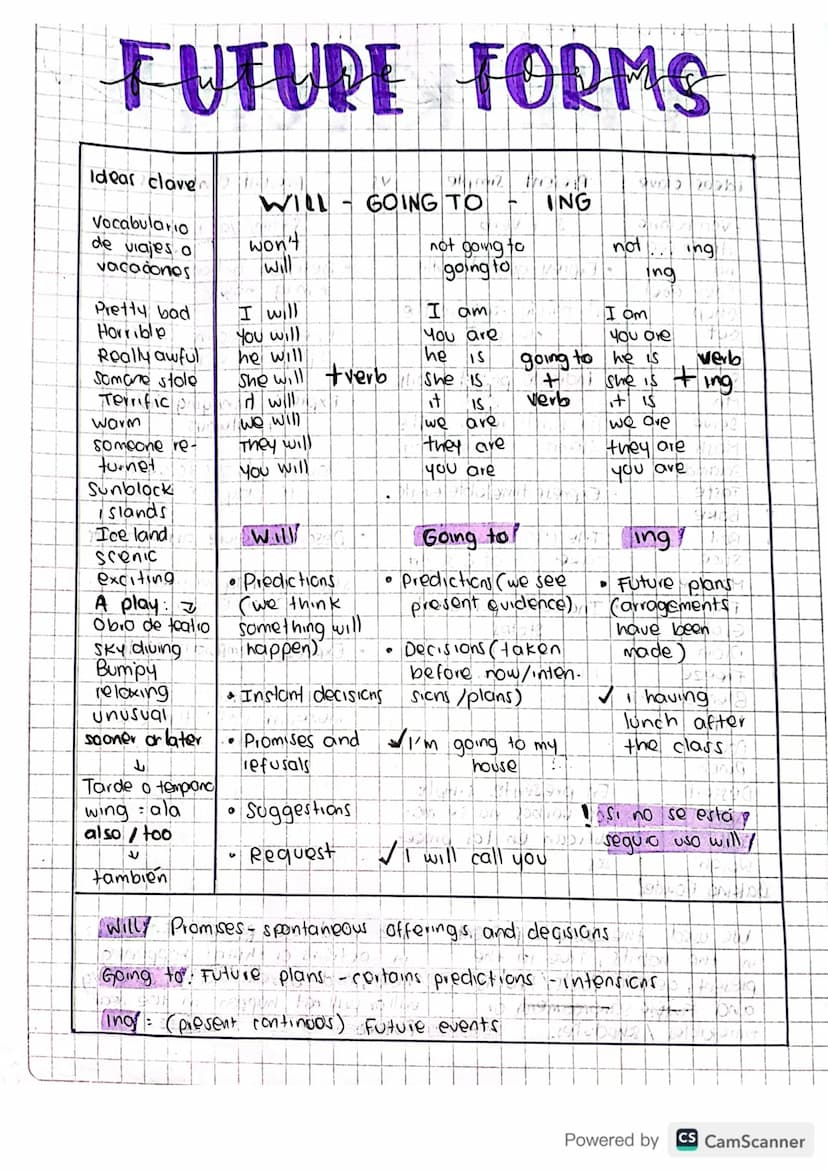 FUTURE FORMS
future forms
Ideas clave
Vocabulario
de viajes o
vacaciones
Pretty bad
Horrible
Really awful
Someone stole
Terrific
worm
someone re-
turnet
Sunblock
islands
Ice land
scenic
exciting
A play: ↴
Obra de teatro
sky diving
Bumpy
relaxing
unusual
sooner or later
↓
Tarde o temprano
wing = ala
also / too
↓
también
WILL - GOING TO - ING
won't
will
not going to
going to
not ... ing
ing
I will
you will
he will
she will
it will
we will
They will
you will
+verb
I am
you are
he is
she is
it is
we are
they are
you are
going to
+
verb
I am
you are
he is
she is
it is
we are
they are
you are
+ verb
ing
Will
• Predictions
(we think
something will
happen)
• Instant decisions
• Promises and
refusals
• Suggestions
• Request
✓ I will call you
Going to
• Predictions (we see
present evidence)
• Decisions (taken
before now/inten-
sions /plans)
✓ I'm going to my
house
ing
• Future plans
(arragements
have been
made)
✓ i having
lunch after
the class
! Si no se está
seguro uso will
Will Promises - spontaneous offerings and decisions
Going to: Future plans - certains predictions - intensions
Ing = (present continuos) Future events
Powered by CS CamScanner